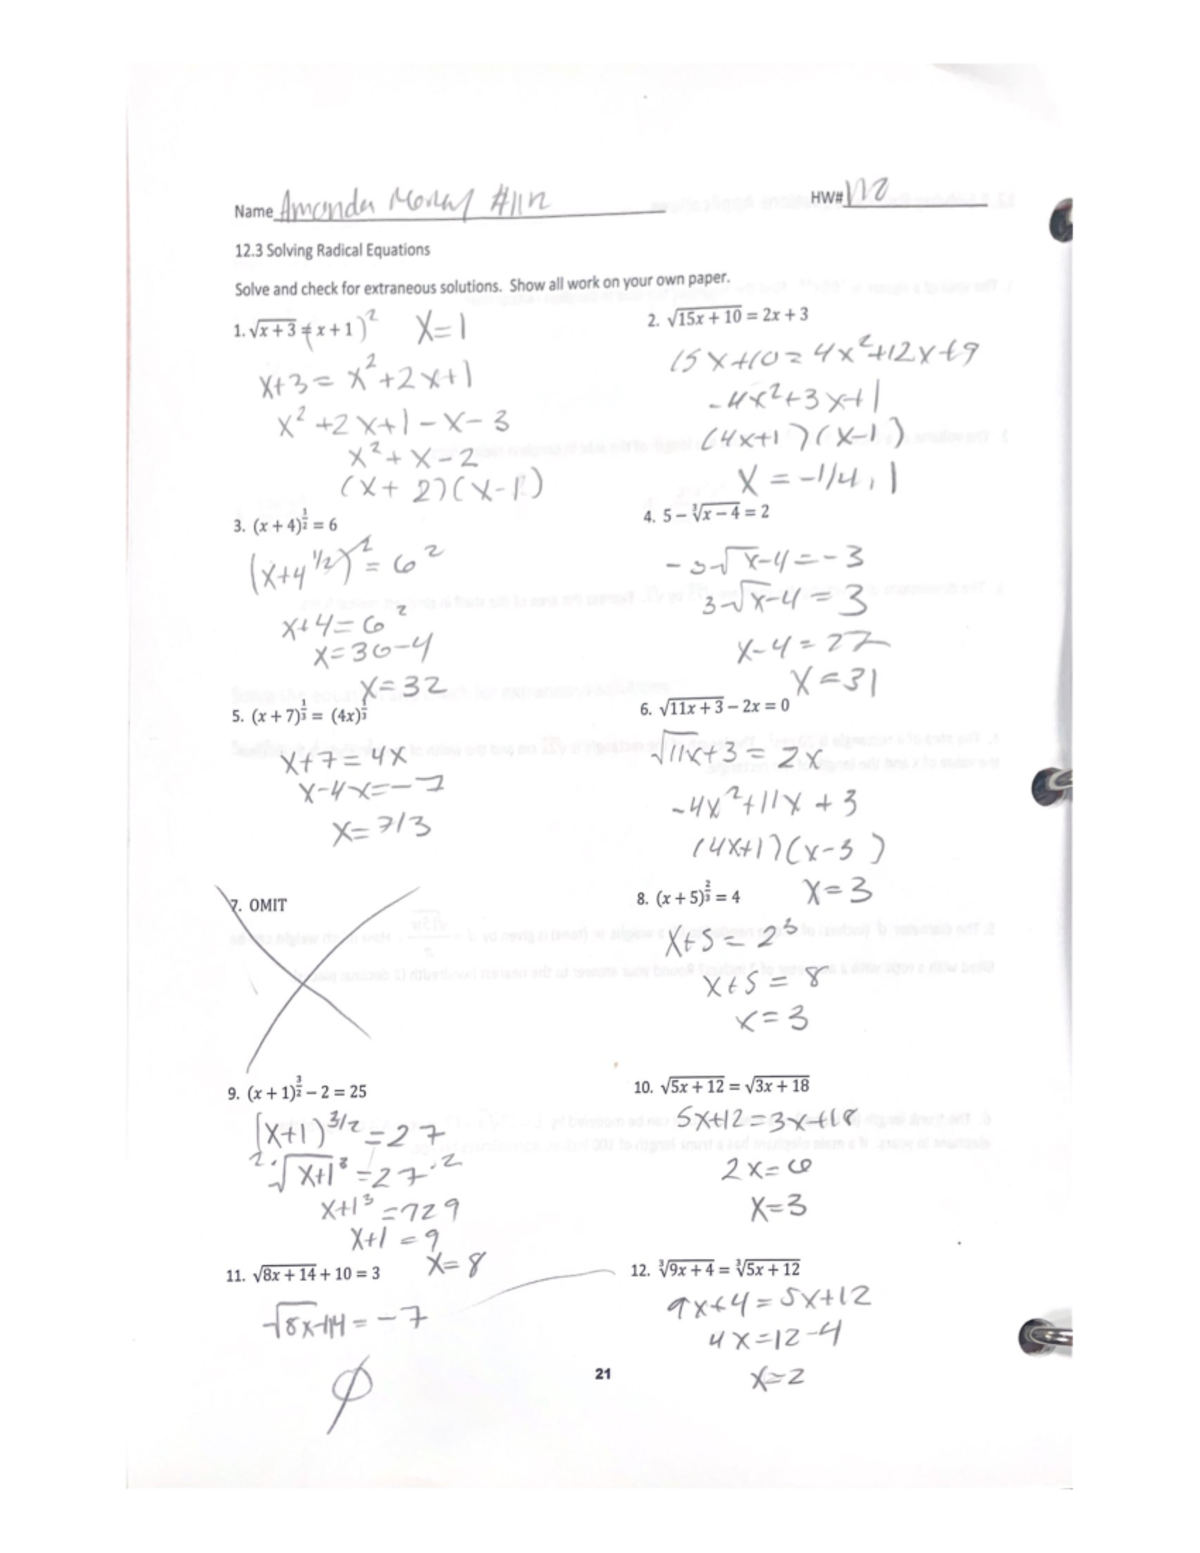 Name Amanda #112
HW# 112
12.3 Solving Radical Equations
Solve and check for extraneous solutions. Show all work on your own paper.
1. √(x + 3) = (x + 1)² x=1
x+3 = x²+2x+1
x²+2x+1-x-3
x²+x-2
(x+2)(x-1)
2. √(15x + 10) = 2x + 3
15x+10=4x²+12x+9
-4x²+3x+1
(4x+1)(x-1)
x=-1/4, 1
3. (x + 4)^(1/2) = 6
(x+4^(1/2))² = 6²
x+4=6²
x=36-4
x=32
4. 5 − ∛(x − 4) = 2
-3√x-4=-3
3√x-4=3
x-4=27
x=31
5. (x + 7)^(1/3) = (4x)^(1/3)
x+7=4x
x-4x=-7
x=7/3
6. √(11x + 3) − 2x = 0
√11x+3=2x
-4x²+11x+3
(4x+1)(x-3)
x=3
7. OMIT
8. (x + 5)^(2/3) = 4
x+5=2³
x+5=8
x=3
9. (x + 1)^(3/2) − 2 = 25
(x+1)^(3/2)=27
2·√x+1³=27·2
x+1³=729
x+1=9
x=8
10. √(5x + 12) = √(3x + 18)
5x+12=3x+18
2x=6
x=3
11. √(8x + 14) + 10 = 3
√8x+14=-7
∅
12. ∛(9x + 4) = ∛(5x + 12)
9x+4=5x+12
4x=12-4
x=2
21